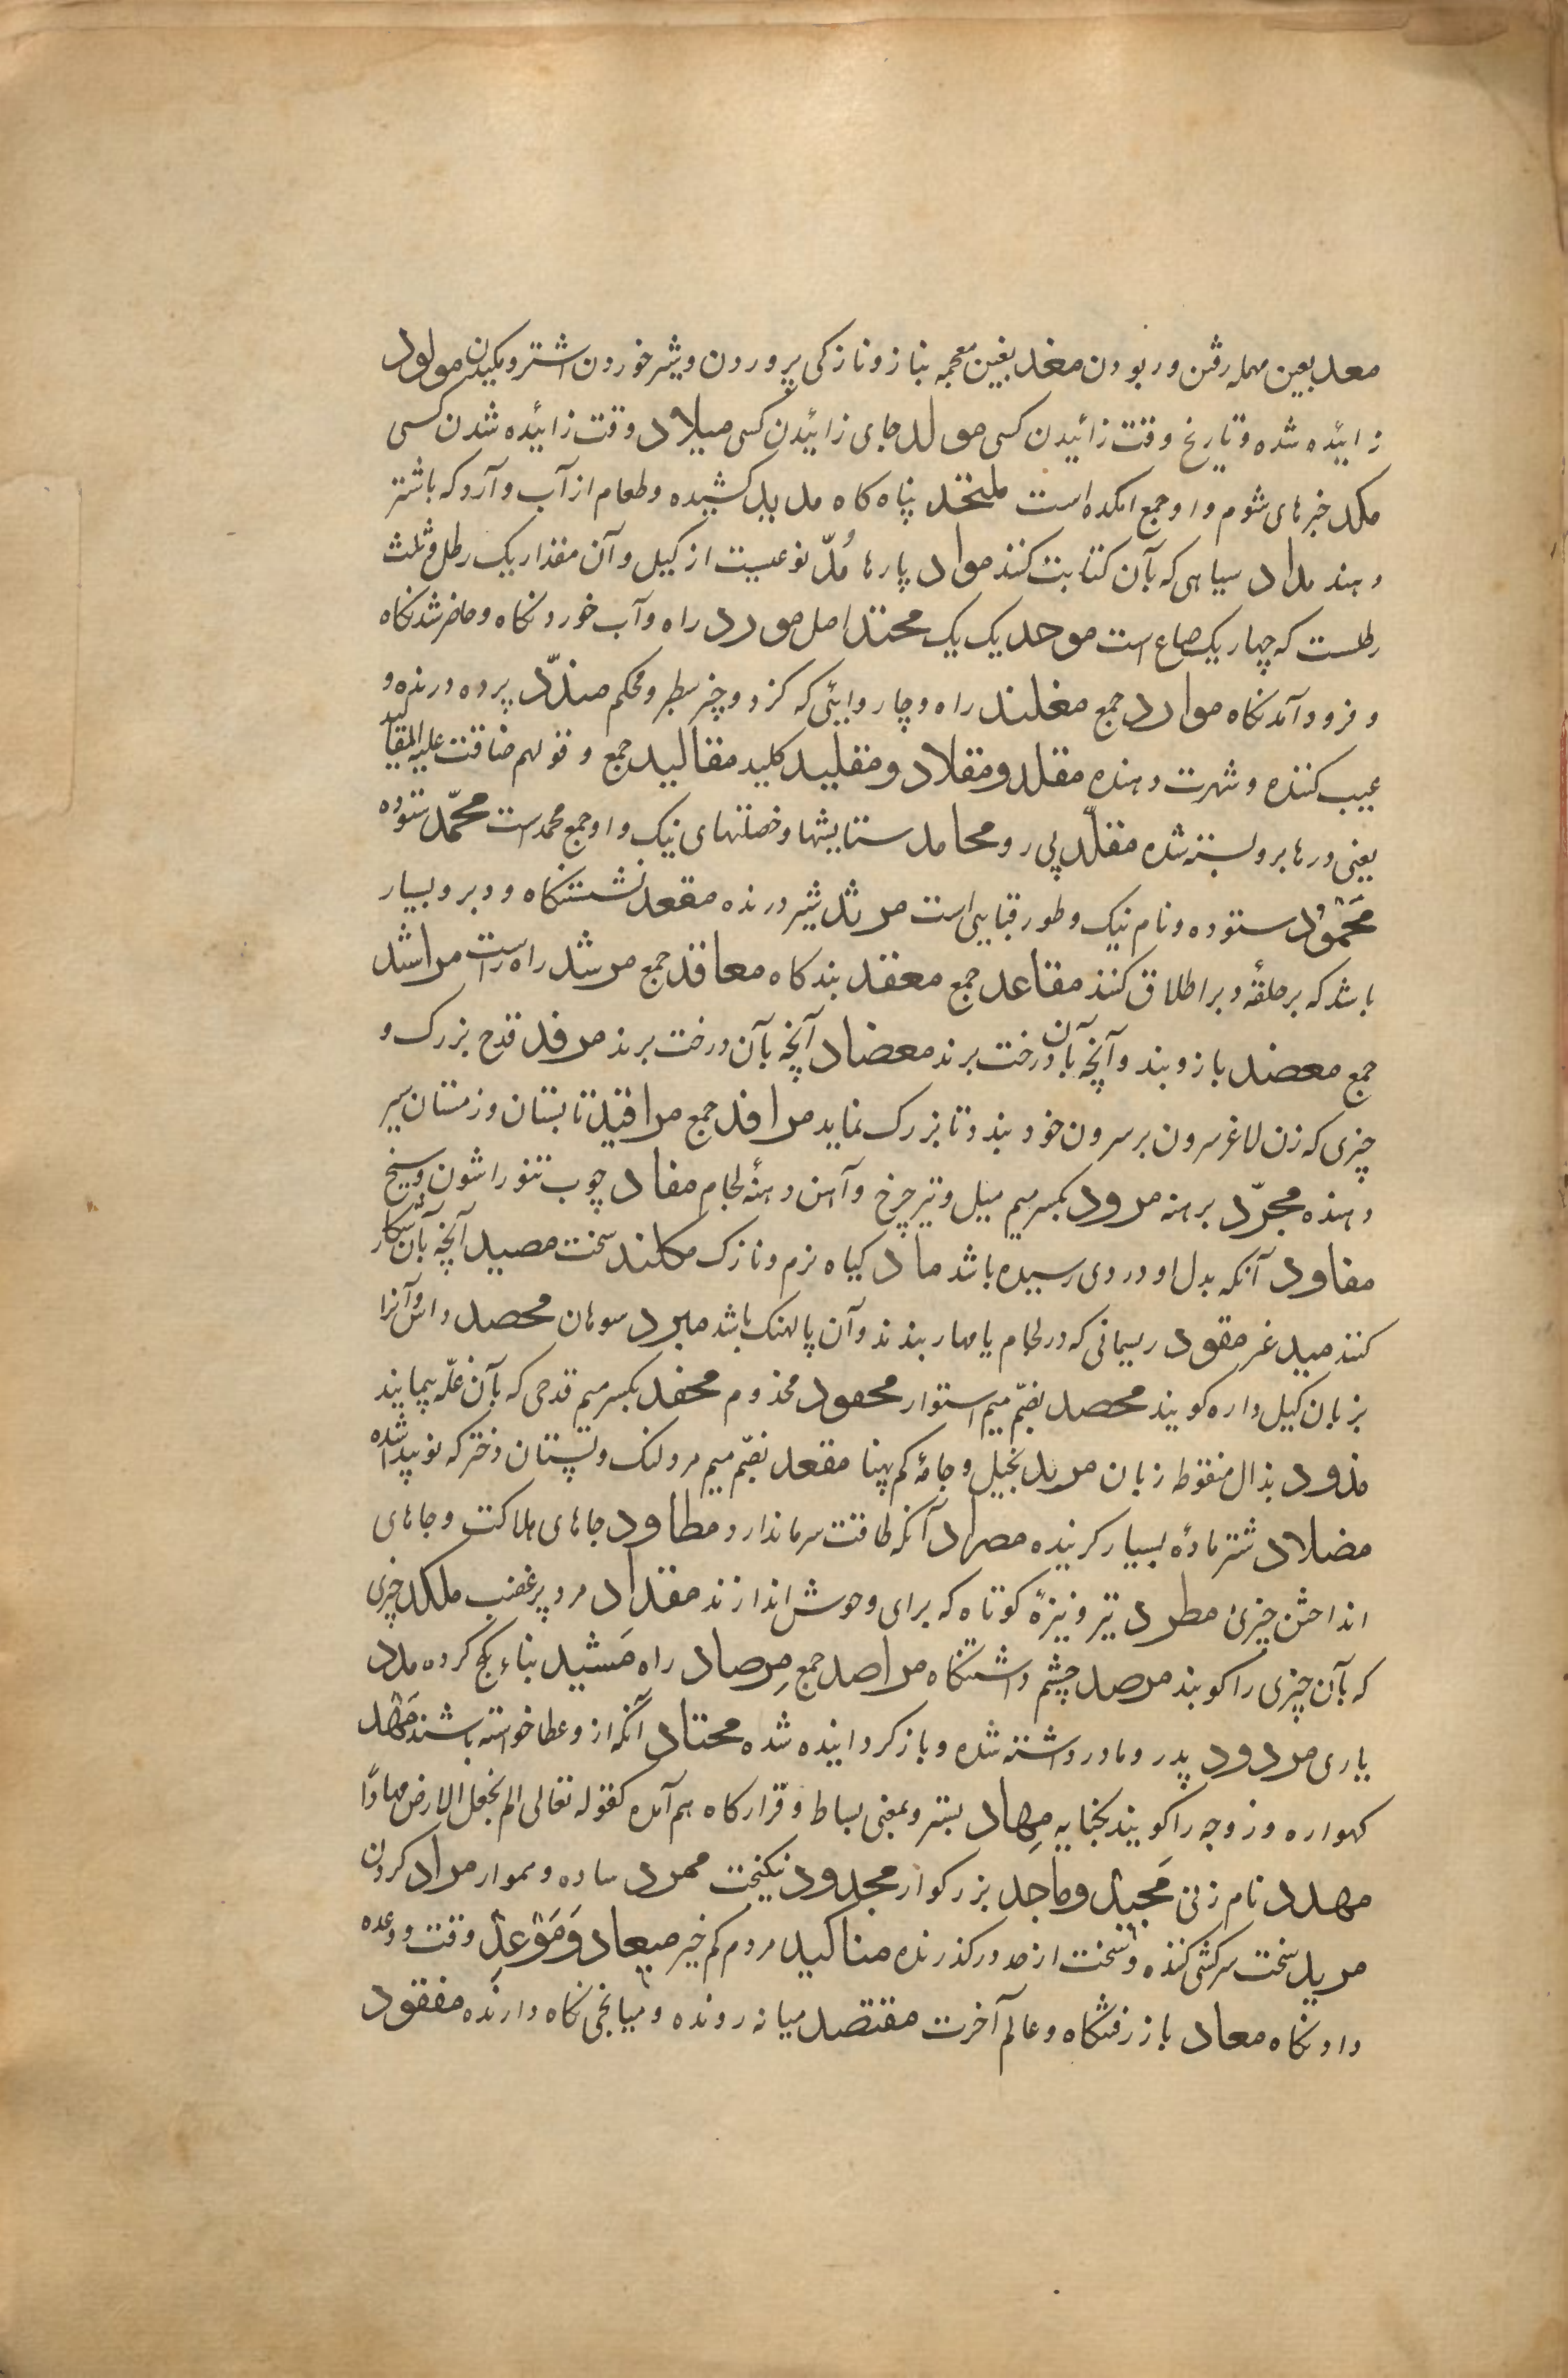 معد بعین مهمله رفتن و ربودن مغد بغین معجمه بناز و نازکی پروردن و شیر خوردن اشتر و مکیدن مولود
زائیده شده و تاریخ وقت زائیدن کسی مولد جای زائیدن کسی میلاد وقت زائیده شدن کسی
مکد خبرهای شوم و او جمع امکده است ملتحد پناه کاه مدید کشیده و طعام از آب و آرد که باشتر
دهند مداد سیاهی که بآن کتابت کنند مواد پارها مُدّ نوعیست از کیل و آن مقدار یک رطل و ثلث
رطلست که چهار یک صاع است موحد یک یک محتد اصل مورد راه و آب خوردنکاه و حاضر شدنکاه
و فرود آمدنکاه موارد جمع مغلند راه و چاروایئی که کزد و چیز سطبر و محکم مندّد پرده درنده و
عیب کننده و شهرت دهنده مقلد و مقلاد و مقلید کلید مقالید جمع و قولهم ضاقت علیه المقالید
یعنی درها برو بسته شده مقلّد پی رو محامد ستایشها و خصلتهای نیک و او جمع محمد است محمّد ستوده
مَحْمُوْد ستوده و نام نیک و طور قبایی است مرثد شیر درنده مقعد نشستنکاه و دبر و بسیار
باشد که بر حلقهٔ دبر اطلاق کنند مقاعد جمع معقد بندکاه معاقد جمع مرشد راه راست مراشد
جمع معضد بازوبند و آنچه بآن درخت برند معضاد آنچه بآن درخت برند مرفد قدح بزرک و
چیزی که زن لاغر سرون بر سرون خود بندد تا بزرک نماید مرافد جمع مرافید تابستان و زمستان سیر
دهنده مجرّد برهنه مرود بکسر میم میل و تیر چرخ و آهن دهنهٔ لجام مفاد چوب تنور اشون و سیخ
مفاود آنکه بدل او دردی رسیده باشد ماد کیاه نرم و نازک مکلند سخت مصید آنچه بآن شکار
کنند مید غر مقود ریسمانی که در لجام یا مهار بندند و آن پالهنک باشد مبرد سوهان محصد داس و آنرا
بزبان کیل داره کویند محصد بضمّ میم استوار محفود مخدوم محفد بکسر میم قدحی که بآن غلّه پیمایند
مذود بذال منقوطه زبان مرید بخیل و جامهٔ کم پهنا مقعد بضمّ میم مرد لنک و پستان دختر که نو پیدا شده
مضلاد شتر مادهٔ بسیار کرینده مصراد آنکه طاقت سرما ندارد مطاود جاهای هلاکت و جاهای
انداختن چیزی مطرد تیر و نیزهٔ کوتاه که برای وحوش اندازند مقنداد مرد پر غضب ملکد چیزی
که بآن چیزی را کوبند مرصد چشم داشتنکاه مراصد جمع مِرصاد راه مَشید بناء کج کرده مدد
یاری مردود پدر و مادر داشته شده و باز کردانیده شده محتاد آنکه ازو عطا خواسته باشند مَهْد
کهواره و زوجه را کویند بکنایه مِهاد بستر و بمعنی بساط و قرارکاه هم آمده کقوله تعالی الم نجعل الارض مهادًا
مهدد نام زنی مَجید و ماجد بزرکوار مجدود نیکبخت ممرد ساده و هموار مراد کردن
مرید سخت سرکشی کننده و سخت از حد درکذرنده مناکید مردم کم خیر میعاد وَ مَوْعِد وقت و وعده
دادنکاه معاد باز رفتنکاه و عالم آخرت مقتصد میانه رونده و میانجی نکاه دارنده مفقود